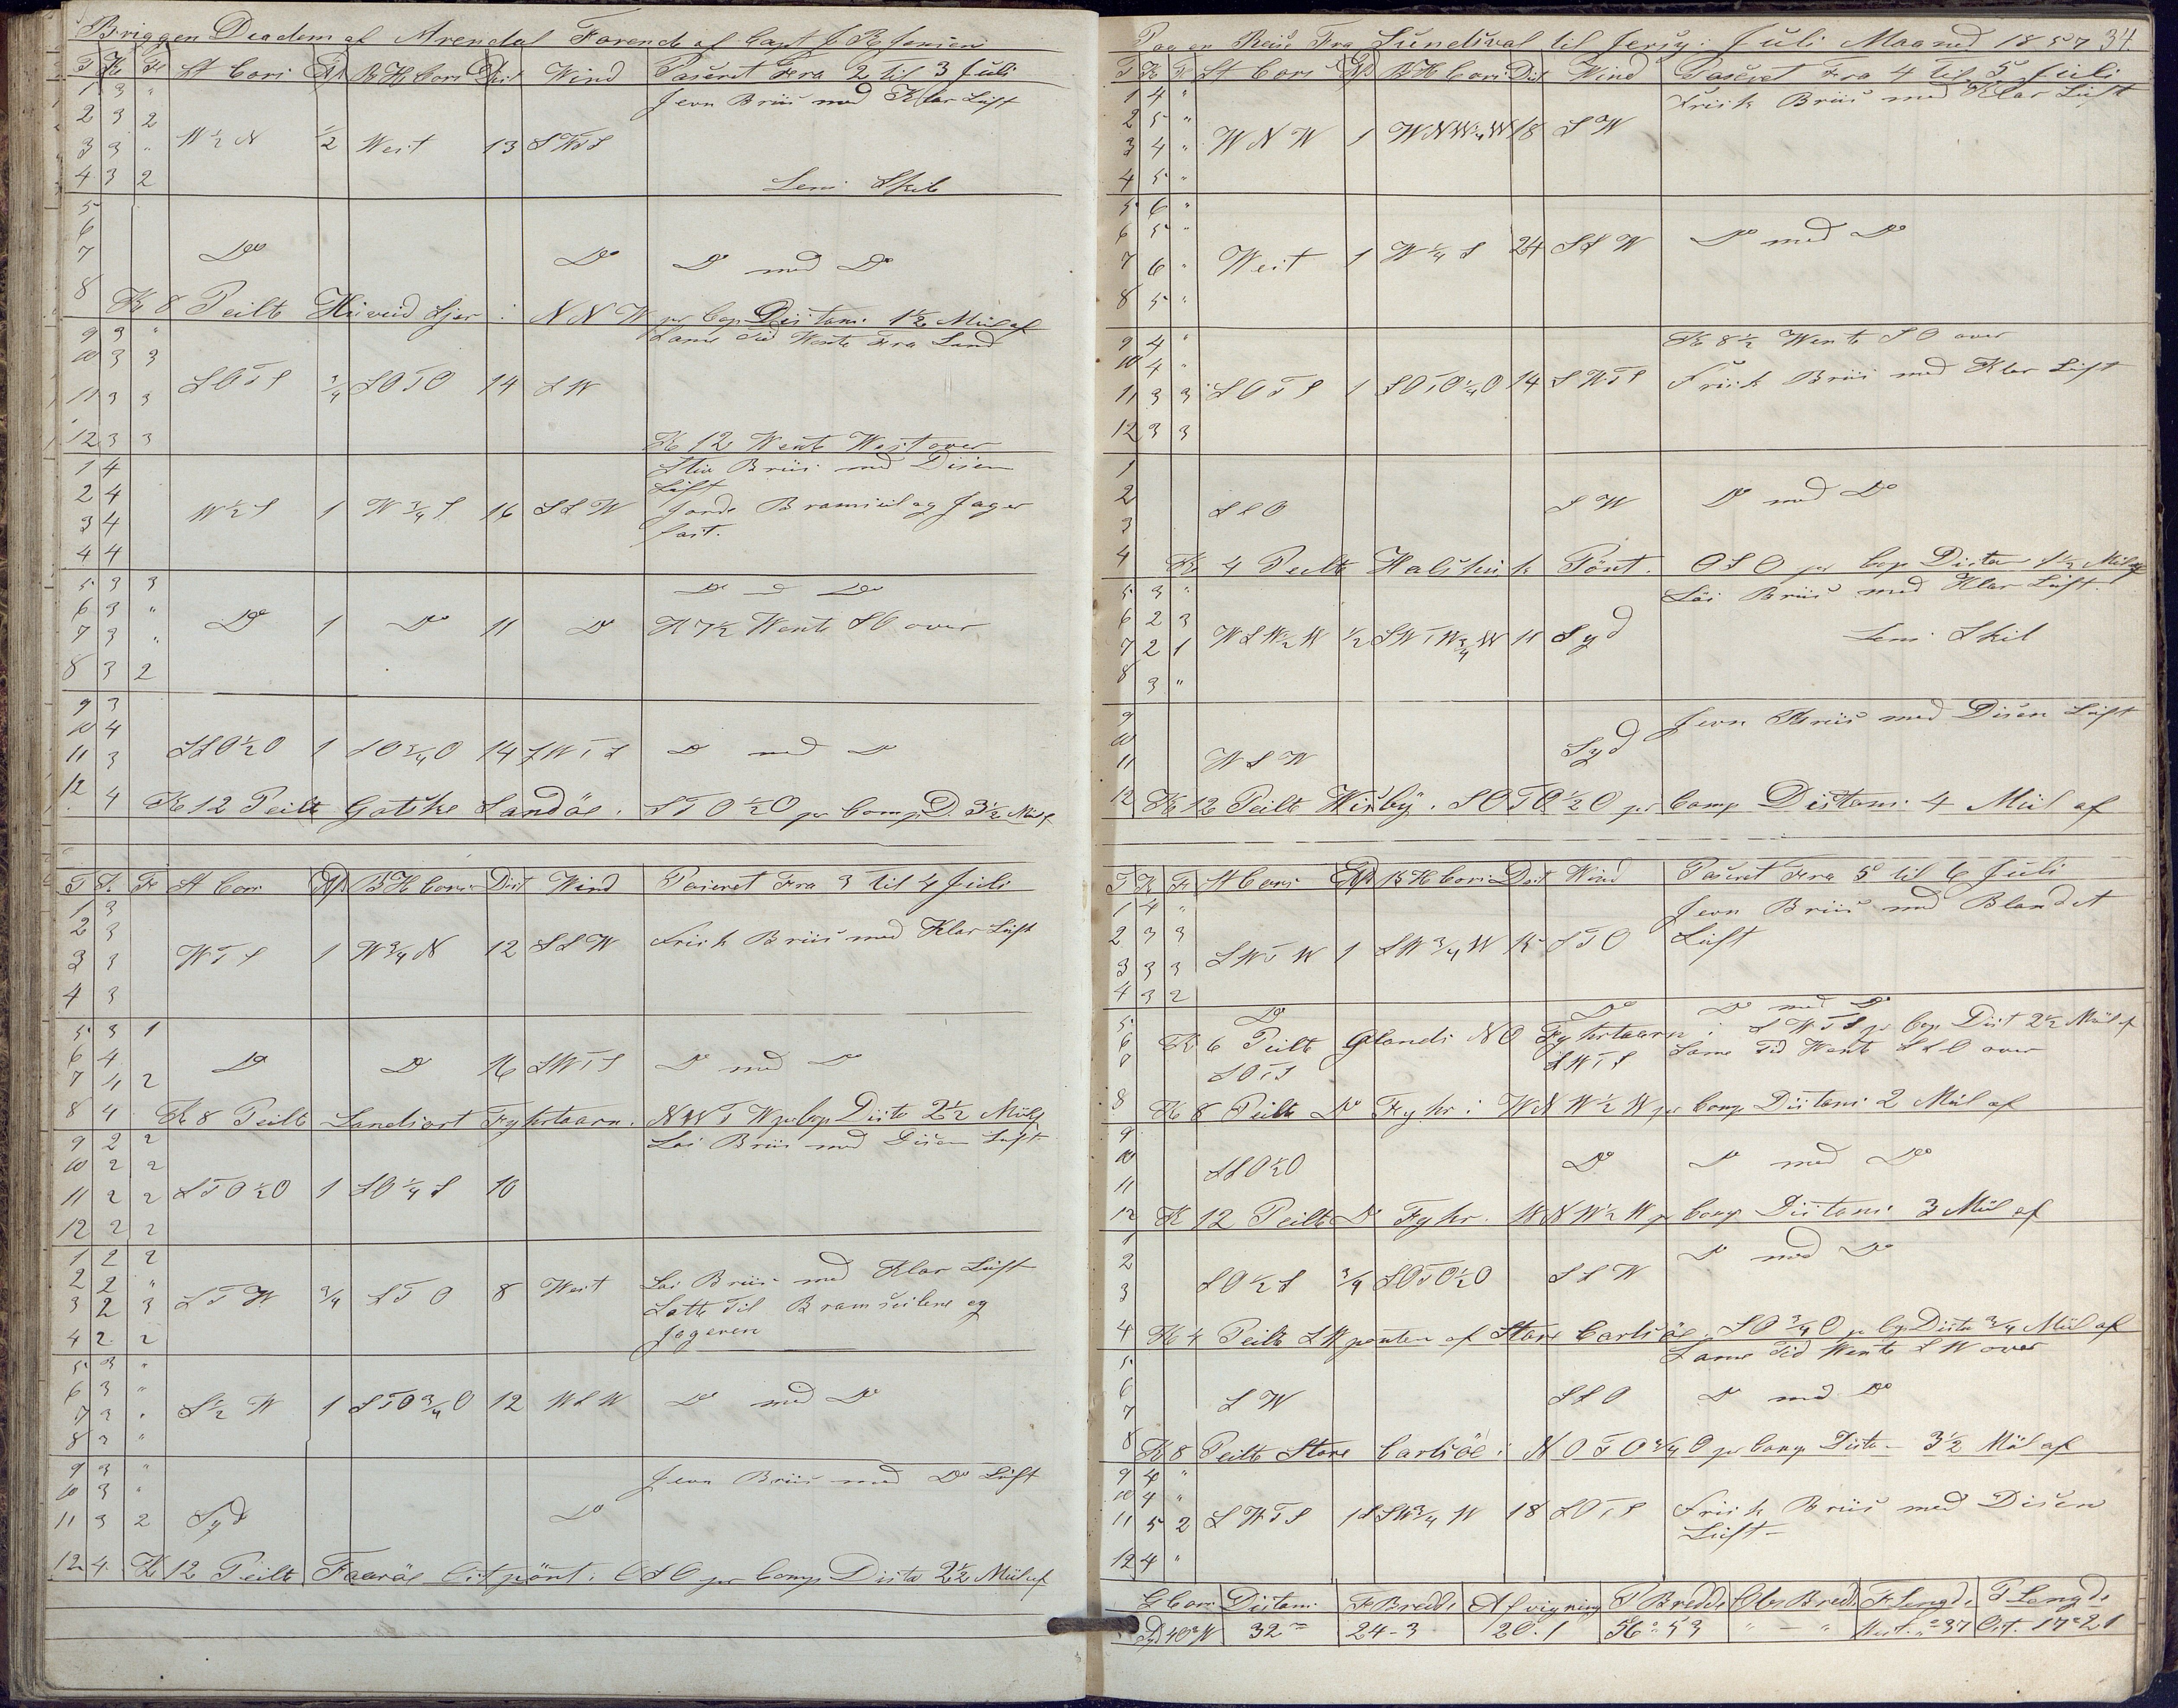 Briggen Diadem af Arendal Førende af Capt J R Jensen
T K F St Cors Afd B H Cors Dist Wind Paseret Fra 2 til 3 Juli
1 3 " Jevn Briis med Klar Lüft
2 3 2
3 3 " W ½ N ½ West 13 SWTS
4 3 2 Lens Skib
5
6
7 Do Do Do med Do
8 Kl 8 Peilte NNW pr Cop Distans 1½ Miil af
9 3 " Same Tid Wente Fra Land
10 3 3
11 3 3 SOTS ¾ SOTO 14 SW
12 3 3 Kl 12 Wente West over
1 4 Stiv Briis med Disen
2 4 Lüft
3 4 W ½ S 1 W ¾ S 16 SSW Jorde Bramseil og Jager
4 4 fast.
5 3 3 Do Do
6 3 "
7 3 " Do 1 Do 11 Do Kl 7½ Wente SO over
8 3 2
9 3
10 4
11 3 SSO ½ O 1 SO ¾ O 14 SWTS Do med Do
12 4 Kl 12 Peilte Gotske Sandöe i STO ½ O pr Comp D. 3½ Miil af
T K F St Cors Afd B H Cors Dist Wind Paseret Fra 3 til 4 Juli
1 3
2 3 Frisk Briis med Klar Lüft
3 3 WTS 1 W ¾ N 12 SSW
4 3
5 3 1
6 4
7 4 2 Do Do 16 SWTS Do med Do
8 4 Kl 8 Peilte Landsort Fyhrtaarn i NWTW pr Cop Distc 2½ Miil af
9 2 2 Löi Briis med Disen Lüft
10 2 2
11 2 2 STO ½ O 1 SO ¼ S 10
12 2 2
1 2 2
2 2 " Löi Briis med Klar Lüft
3 2 3 STW ¾ STO 8 West Satte Til Bramseilene og
4 2 2 Jageren
5 3 "
6 3 "
7 3 " S ½ W 1 STO ¾ O 12 WSW Do med Do
8 3 "
9 3 " Jevn Briis med Do Lüft
10 3 "
11 3 2 Syd Do
12 4 Kl 12 Peilte Faaröe Östpönt i OSO pr Comp Dista 2½ Miil af
Paa en Reise Fra Sundsval til Jersy i Juli Maaned 1857 34.
T K F St Cors Afd B H Cors Dist Wind Paseret Fra 4 til 5 Juli
1 4 " Frisk Briis med Klar Lüft
2 5 "
3 4 " WNW 1 WNW ¼ W 18 SW
4 5 "
5 6 "
6 5 "
7 6 " West 1 W ¼ S 24 SSW Do med Do
8 5 "
9 4 " Kl 8½ Wente SO over
10 4 "
11 3 3 SOTS 1 SOTO ¼ O 14 SWTS Frisk Briis med Klar Lüft
12 3 3
1
2 SSO SW Do med Do
3
4 Kl 4 Peilte Halshuk Pönt. OSO pr Cop Distan 1½ Miil af
5 3 " Löi Briis med Klar Lüft.
6 2 3
7 2 1 WSW ½ W ½ SWTW ¾ W 11 Syd Lens Skib
8 3 "
9 Jevn Briis med Disen Lüft
10
11 WSW Syd
12 Kl 12 Peilte Wisby i SOTO ½ O pr Comp Distans 4 Miil af
T K F St Cors Afd B H Cors Dist Wind Paseret Fra 5 til 6 Juli
1 4 " Jevn Briis med Blandet
2 3 3 Lüft
3 3 3 SWTW 1 SW ¾ W 15 STO
4 3 2
5 Do Do Do med Do
6 Kl 6 Peilte Ølands NO Fyhrtaarn i SWTS pr Cop Dist 2½ Miil af
7 SOTS SWTS Same Tid Wente SSO over
8 Kl 8 Peilte Do Fyhr i WNW ½ W pr Comp Distans 2 Miil af
9
10 SSO ½ O Do Do med Do
11
12 Kl 12 Peilte Do Fyhr. WNW ½ W pr Comp Distans 3 Miil af
1
2 Do med Do
3 SO ½ S ¾ SOTO ½ O SSW
4 Kl 4 Peilte SWpønten af Store Carlsöe i SO ¾ O pr Cop Dista ¾ Miil af
5 Same Tid Wente SW over
6
7 SW SSO Do med Do
8 Kl 8 Peilte Store Carlsöe i NOTO ¾ O pr Comp Dista 3½ Miil af
9 4 "
10 4 "
11 5 2 SWTS 1 SSW ¾ W 18 SOTS Frisk Briis med Disen
12 4 " Lüft
G Cors Distans F Bredde Afvigning P Bredde Obs Brede F Lengde P Lengde
Syd 40° W 32 24-3 20.1 56°53 " - " West. "°37 Öst. 17°21